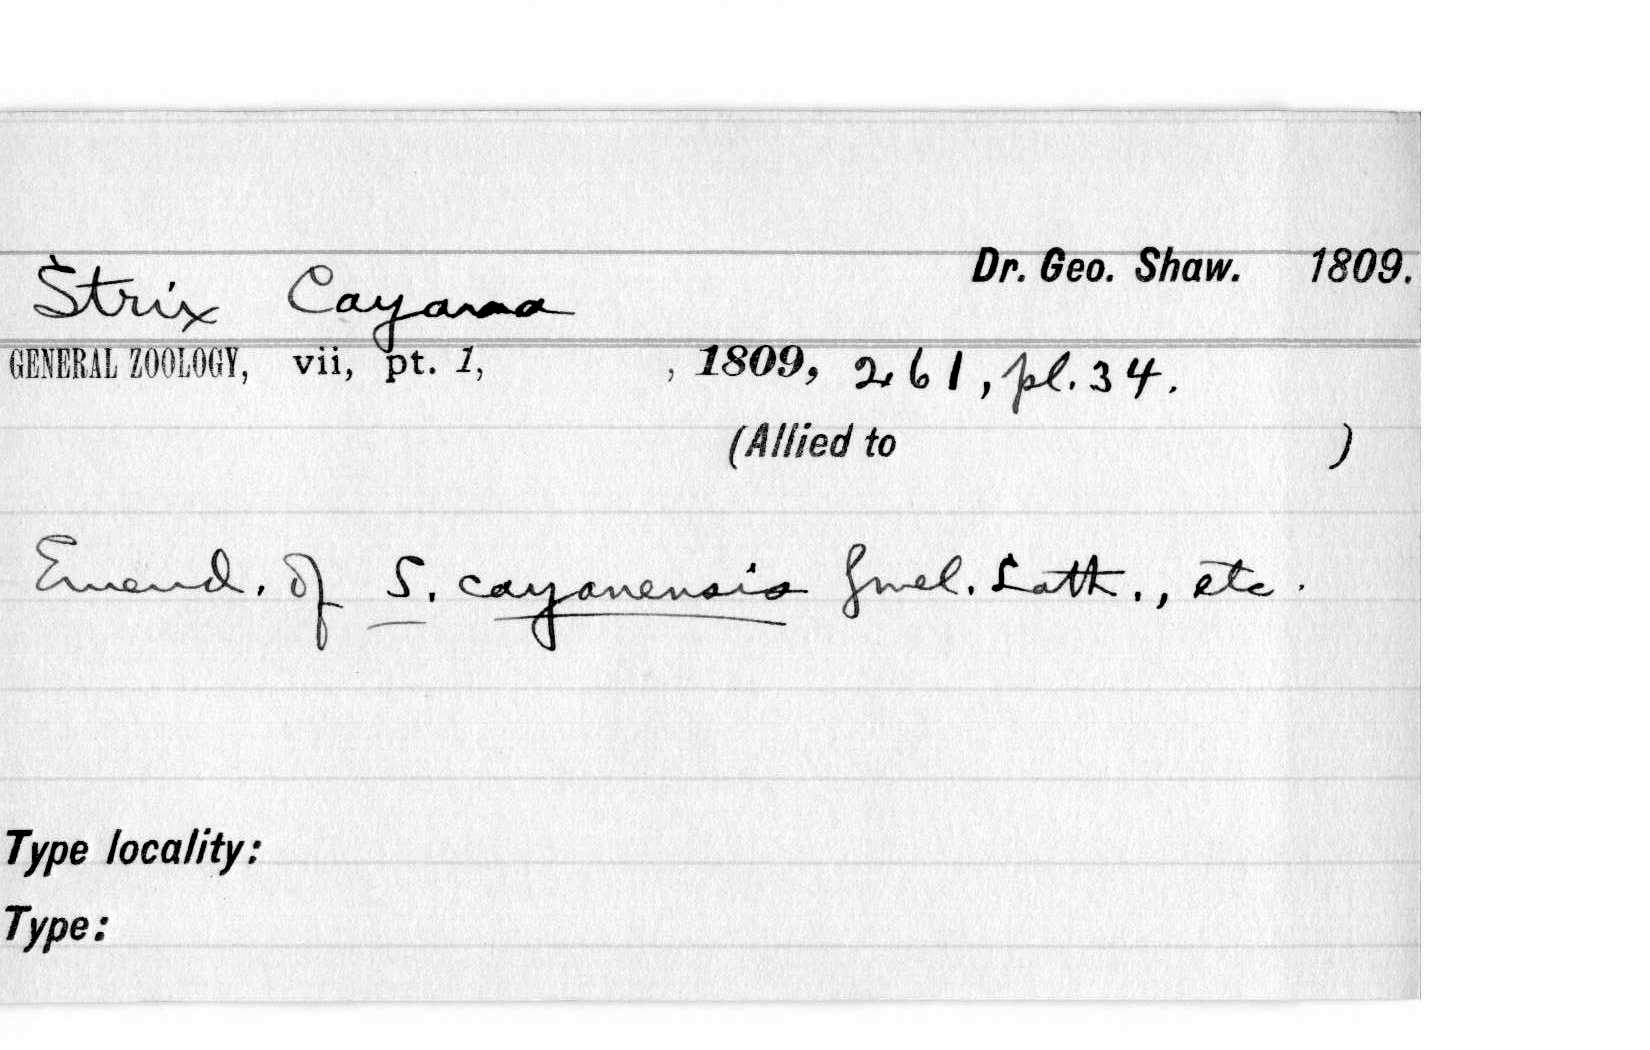 Dr. Geo. Shaw. 1809.
Strix Cayana
GENERAL ZOOLOGY, vii, pt. 1, , 1809, 261, pl. 34.
(Allied to )
Emend. of S. cayanensis Gmel. Lath., etc.
Type locality:
Type: